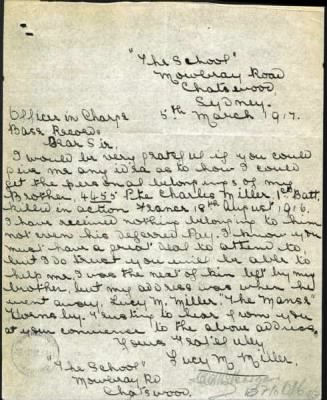 "The School"
Mowbray Road
Chatswood
Sydney.
Officer in Charge 5th March 1917.
Base Records
Dear Sir,
I would be very grateful if you could
give me any idea as to how I could
get the personal belongings of my
Brother 4455 Pte Charles Miller 1st Batt.
killed in action France 18th August 1916.
I have received nothing belonging to him
not even his deferred Pay. I know you
must have a great deal to attend to,
but I do trust you will be able to
help me. I was the next of kin left by my
brother, but my address was when he
went away, Lucy M. Miller "The Manse"
Hornsby. Trusting to hear from you
at your convience to the above address.
Yours
Lucy M. Miller.
"The School"
Mowbray Rd
Chatswood.